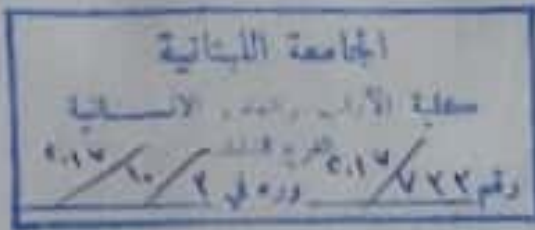 الجامعة اللبنانية
كلية الآداب والعلوم الانسانية
رقم ٧٢٢/٢٠١٧ ورد في ٢/١٠/٢٠١٧